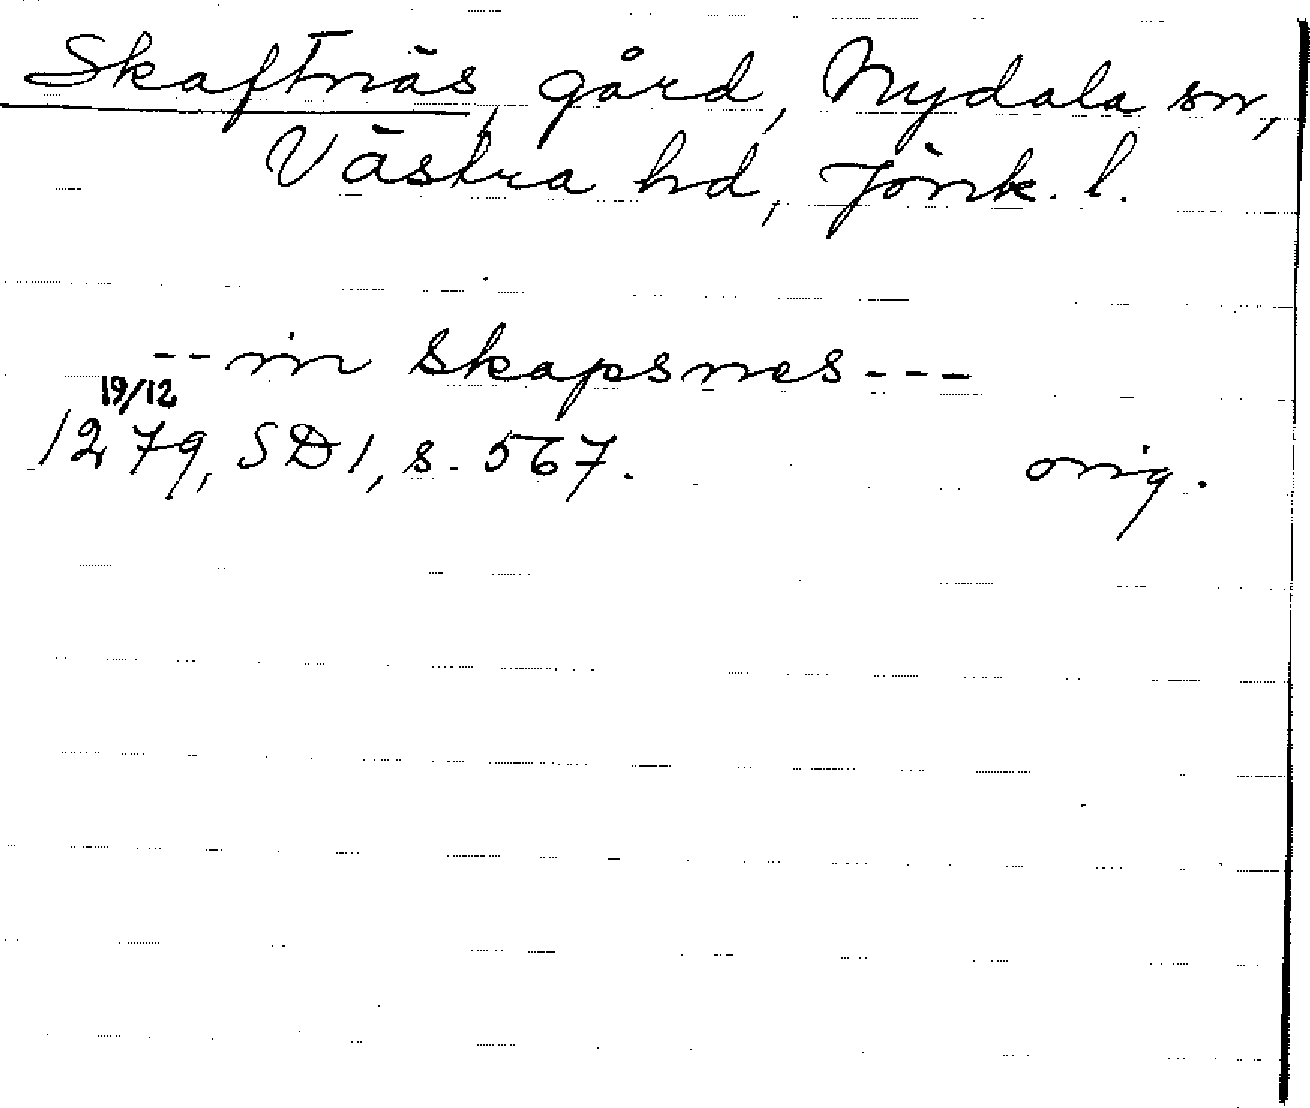 Skaftnäs, gård, Nydala sn,
Västra hd, Jönk. l.
-- in skapsnes ---
19/12
1279, SD 1, s. 567. orig.